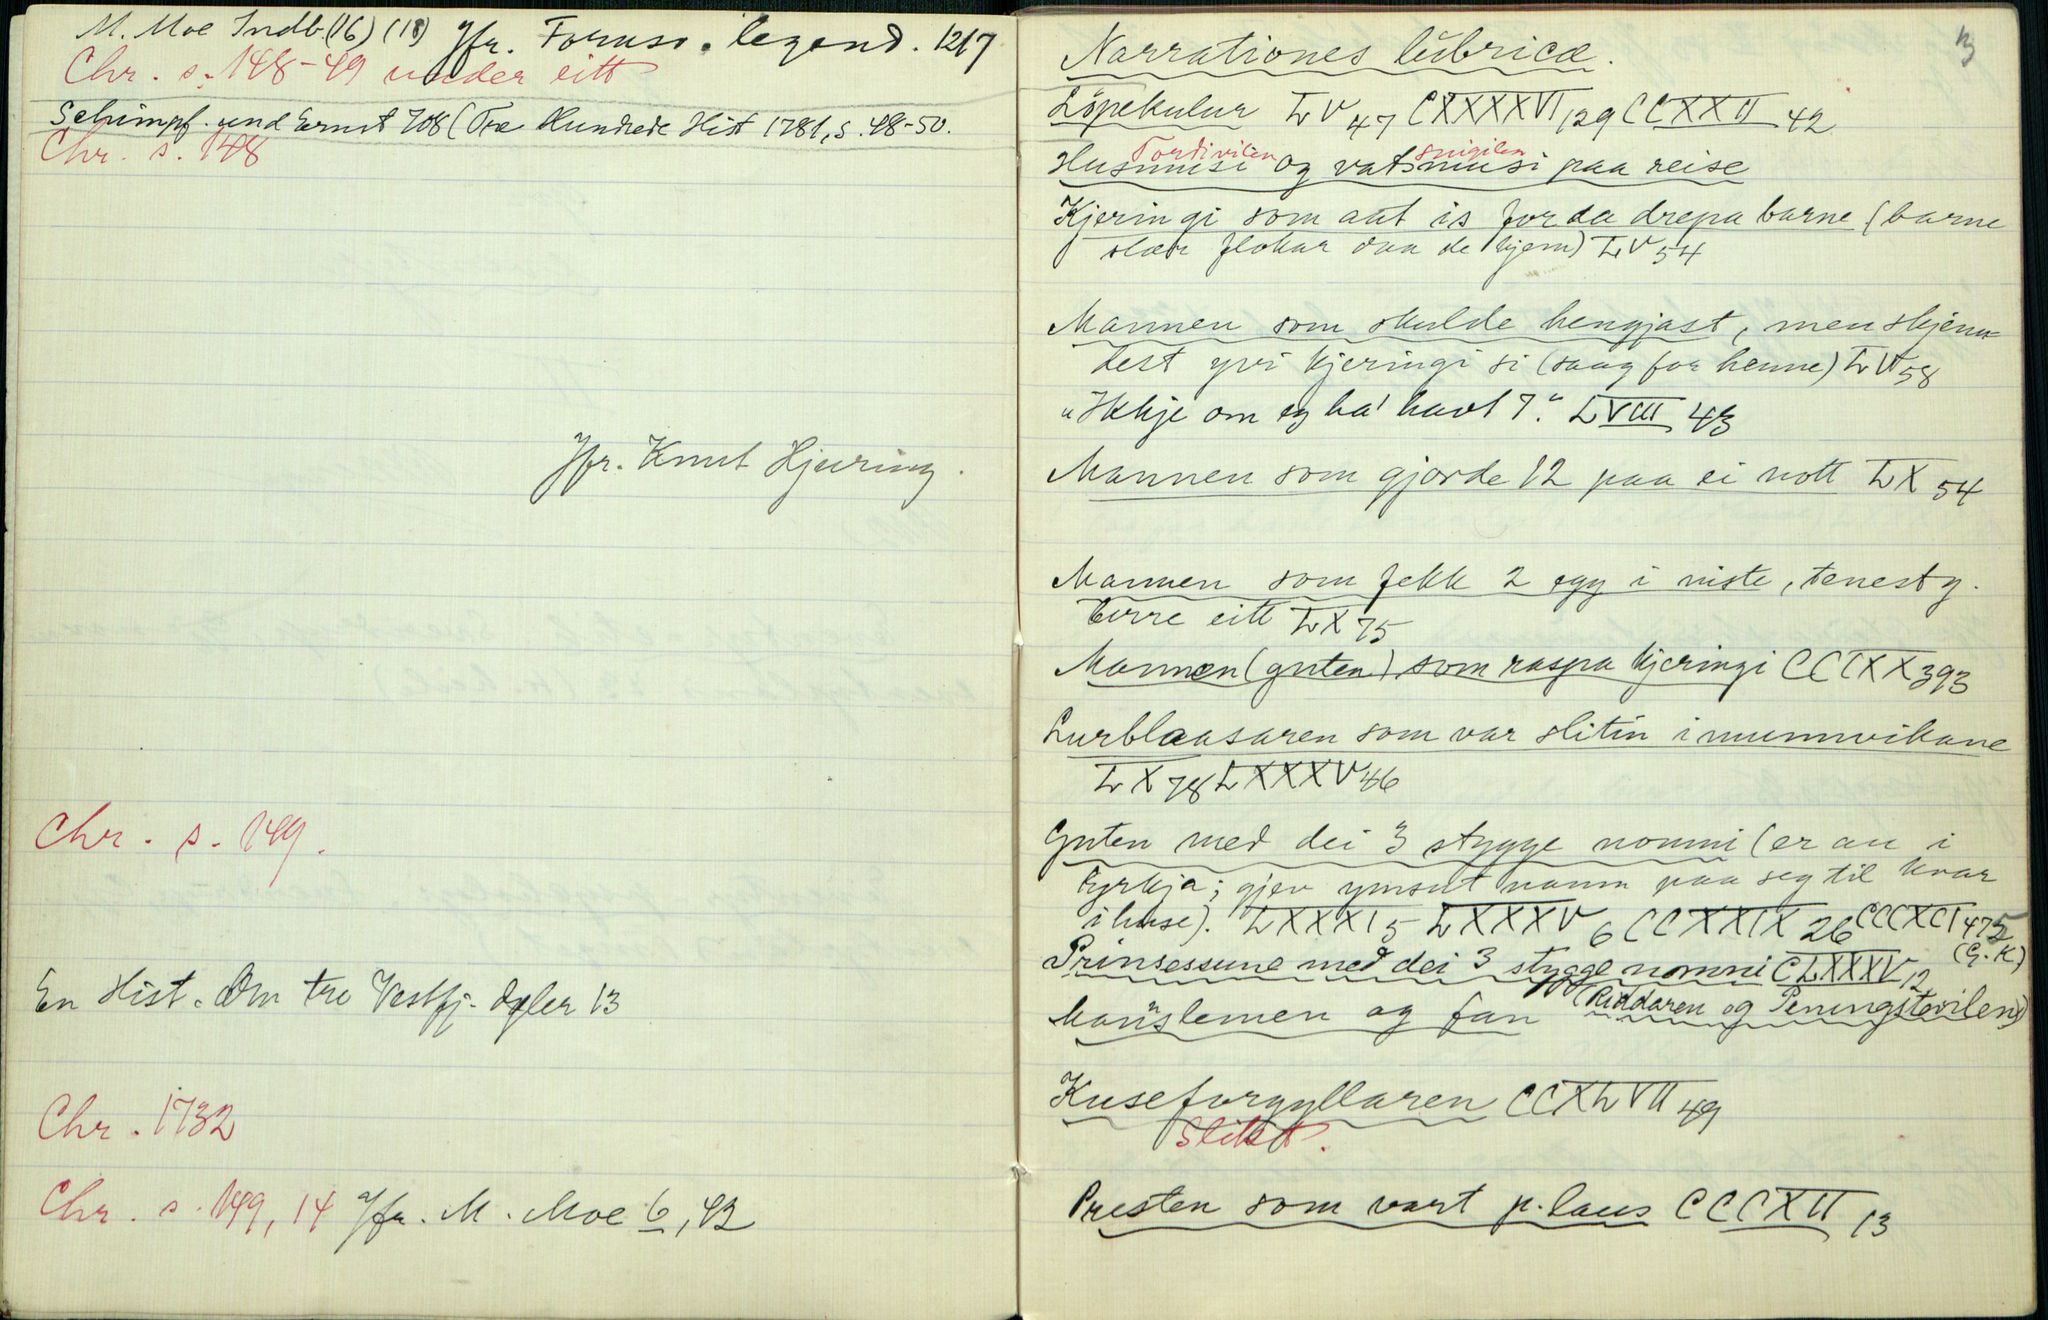 M. Moe Indb. (16) (18) Jfr. Fornsv. legend. 1217
Chr. s. 148-49 under eitt
Schimpf und Ernst 208 (Tre Hundrede Hist 1781, s. 48-50.
Chr. s. 148
Jfr. Knut Hjuring.
Chr. s. 149.
En Hist. Om tre Vestfj. døler 13
Chr. 1732
Chr. s. 149, 14 Jfr. M. Moe 6, 42
Narrationes lubricæ.
Löpekulur LV 47 CXXXXVI 129 CCXXII 42
Tordivilen snigilen
Husmusi og vatsmusi paa reise
Kjeringi som aat is for da drepa barne (barne
slær flokar daa de kjem) LV 54
Mannen som skulde hengjast, men skjem-
test yvi kjeringi si (saag for henne) LVI 58
"Ikkje om eg ha' havt 7." LVIII 43
Mannen som gjorde 12 paa ei nott LX 54
Mannen som fekk 2 egg i niste, tenest g.
burre eitt LX 75
Mannen (guten) som raspa kjeringi CCCXX 393
Lurblaasaren som var sliten i munnvikane
LX 78 LXXXV 46
Guten med dei 3 stygge nomni (er au i
kyrkja; gjev ymsut namn paa seg til kvar
i huse). LXXXI 5 LXXXV 6 CCXXIX 26 CCCXCI 475
(G. K)
Prinsessune med dei 3 stygge nomni CLXXXV 12
(Riddaren og Peningstivilen)
Mannslemen og fan
Kuseforgyllaren CCXLVII 49
Slikt.
Presten som vart p. laus CCCXII 13